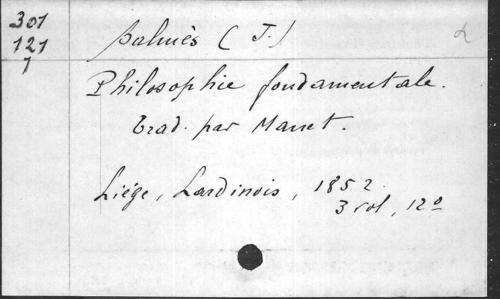 301
121
1
Balmès (J.)
Philosophie fondamentale.
Trad. par Manet.
Liége, Lardinois, 1852.
3 vol, 12º